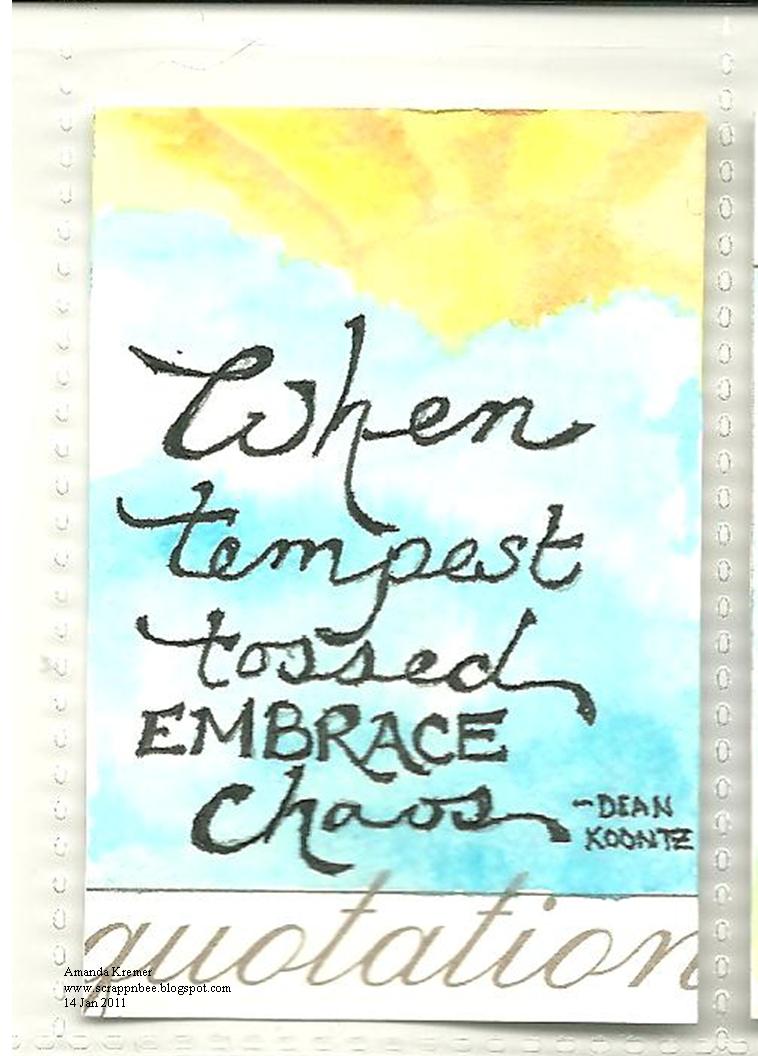 When
tempest
tossed
EMBRACE
chaos
~DEAN
KOONTZ
quotation
Amanda Kremer
www.scrappnbee.blogspot.com
14 Jan 2011